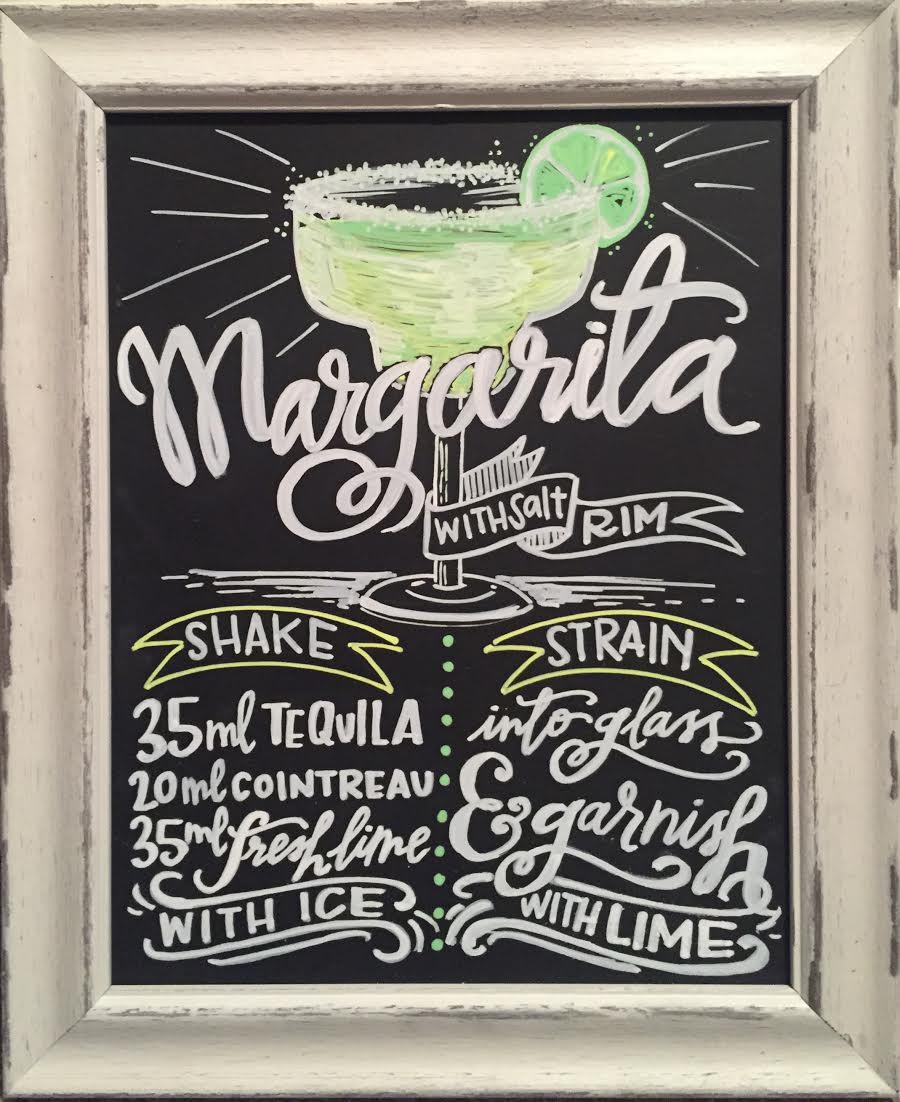 Margarita
WITH Salt RIM
SHAKE
35ml TEQUILA
20ml COINTREAU
35ml fresh lime
WITH ICE
STRAIN
into glass
& garnish
WITH LIME